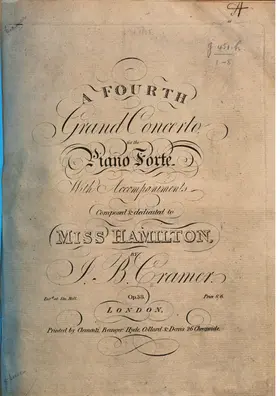 A
A FOURTH
Grand Concerto,
for the
Piano Forte.
With Accompaniments
Composed & dedicated to
MISS HAMILTON,
BY
J. B. Cramer.
Ent.ᵈ at Sta. Hall.
Op.
LONDON,
Printed by Clementi, Banger, Hyde, Collard & Davis 26 Cheapside.